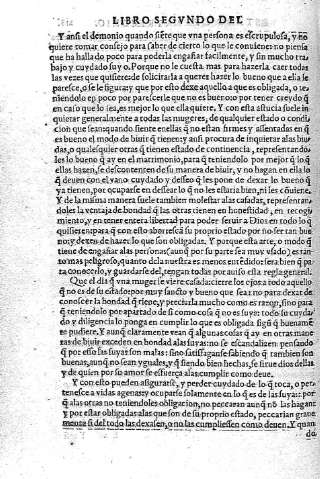 LIBRO SEGVNDO DEL
Y ansi el demonio quando siẽte que vna persona es escrupulosa, y no
quiere tomar consejo para saber de cierto lo que le conuiene: no piensa
que ha hallado poco para poderla engañar facilmente, y sin mucho tra-
bajo y cuydado suyo. Porque no le cuesta mas para hazerla caer todas
las vezes que quisiere: de solicitarla a querer hazer lo bueno que a ella le
paresce, o se le figura: y que por esto dexe aquello a que es obligada, o te-
niendolo en poco por parescerle que no es bueno: o por tener creydo q̃
en caso que lo sea, es mejor lo que ella quiere. Y con esta astucia suele in
quietar generalmente a todas las mugeres, de qualquier estado o condi
cion que sean: quando siente en ellas q̃ no estan firmes y assentadas en q̃
es bueno el modo de biuir q̃ tienen: y ansi procura de inquietar alas biu
das, o qualesquier otras q̃ tienen estado de continencia, representando-
les lo bueno q̃ ay en el matrimonio, para q̃ teniendolo por mejor q̃ lo q̃
ellas hazen, se descontenten de su manera de biuir, y no hagan en ella lo
q̃ deuen con el cuydado y desseo q̃ les pone de dexar lo bueno q̃
ya tienen, por ocuparse en dessear lo q̃ no les estaria bien, ni les cõuiene.
Y de la misma manera suele tambien molestar alas casadas, representan-
doles la ventaja de bondad q̃ las otras tienen en honestidad, en recogi-
miento, y en tener entera libertad para seruir a Dios en todo lo q̃
quisieren: para q̃ con esto aborresca su proprio estado por no ser tan bue
no: y dexen de hazer lo que son obligadas. Y porque esta arte, o modo q̃
tiene de engañar alas personas (aunq̃ por su parte sea muy vsado) es tan-
to mas peligroso, quanto della vuestra es menos entẽdido: sera bien q̃ pa
ra conocerlo, y guardarse del, tengan todas por auiso esta regla general.
Que el dia q̃ vna muger se viere casada: cierre los ojos a todo aquello
q̃ no es de su estado: por muy sancto y bueno que sea: no para dexar de
conoscer la bondad q̃ tiene, y preciarla mucho como es razon, sino para
q̃ teniendolo por apartado de si como cosa q̃ no es suya: todo su cuyda-
do y diligencia lo ponga en cumplir lo que es obligada segũ q̃ buenamẽ
te pudiere. Y aunq̃ claramente vean q̃ algunas cosas q̃ ay en otras mane
ras de biuir exceden en bondad alas suyas: no se escandalizen: pensando
q̃ por esso las suyas son malas: sino satisfagan se sabiendo q̃ tambien son
buenas, aunq̃ no sean yguales, y q̃ siendo bien hechas, se sirue dios dellas
y de quien por su amor se esfuerça alas cumplir como deue.
Y con esto pueden assegurarse, y perder cuydado de lo q̃ toca, o per-
tenesce a vidas agenas: y ocuparse solamente en lo q̃ es de las suyas: por
q̃ alas otras no teniendoles obligacion, no peccaran aunq̃ no las hagan:
y por estar obligadas alas que son de su proprio estado, peccarian graue
mente si del todo las dexassen, o no las cumpliessen como deuen. Y quan
do